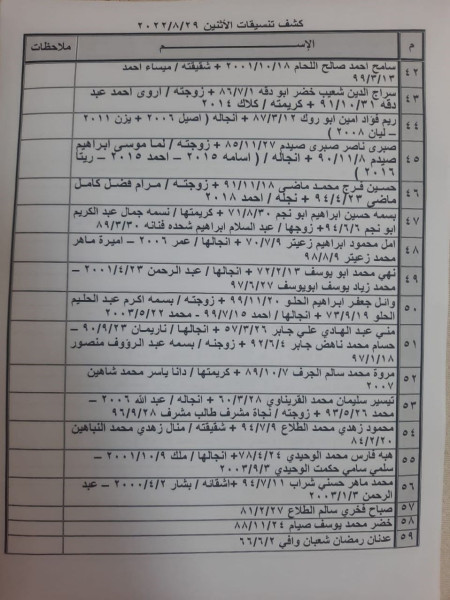 كشف تنسيقات الأثنين ٢٠٢٢/٨/٢٩
م الإســـــم ملاحظات
٤٢ سامح احمد صالح اللحام ٢٠٠١/١٠/١٨ + شقيقته / ميساء احمد
٩٩/٣/١٣
٤٣ سراج الدين شعيب خضر ابو دقه ٨٦/٧/١ + زوجته / اروى احمد عبد
دقه ٩١/١٠/٣١ + كريمته / كلاك ٢٠١٤
٤٤ ريم فؤاد امين ابو روك ٨٧/٣/١٢ + انجاله ( اصيل ٢٠٠٦ + يزن ٢٠١١
– ليان ٢٠٠٨ )
٤٥ صبري ناصر صبري صيدم ٨٥/١١/ + زوجته / لما موسى ابراهيم
صيدم ٩٠/١١/٨ + انجاله / ( اسامه ٢٠١٥ – احمد ٢٠١٥ – ريتا
٢٠١٦ )
٤٦ حسين فرج محمد ماضي ٩١/١١/١٨ + زوجته / مرام فضل كامل
ماضي ٩٤/٤/٢٣ + نجله / احمد ٢٠١٨
٤٧ بسمه حسين ابراهيم ابو نجم ٧١/٨/٣٠ + كريمتها / نسمه جمال عبد الكريم
ابو نجم ٩٤/٦/٦ + زوجها / عبد السلام ابراهيم شحده فنانه ٨٩/٣/٣٠
٤٨ امل محمود ابراهيم زعيتر ٧٠/٧/٩ + انجالها / عمر ٢٠٠٦ – اميرة ماهر
محمد زعيتر ٩٨/٨/٩
٤٩ نهي محمد ابو يوسف ٧٢/٢/١٣ + انجالها / عبد الرحمن ٢٠٠١/٤/٢٣ –
محمد زياد يوسف ابويوسف ٩٧/٦/٢٧
٥٠ وائل جعفر ابراهيم الحلو ٩٩/١١/٢٠ + زوجته / بسمه اكرم عبد الحليم
الحلو ٧٣/٩/١٩ + انجالها / احمد ٩٩/٧/١٥ - محمد ٢٠٠٣/٥/٢٢
٥١ مني عبد الهادي علي جابر ٥٧/٣/٢٦ + انجالها / ناريمان ٩٠/٩/٢٣ –
حسام محمد ناهض جابر ٩٢/٦/٤ + زوجته / بسمه عبد الرؤوف منصور
٩٧/١/١٨
٥٢ مروة محمد سالم الجرف ٨٩/١٠/٧ + كريمتها / دانا ياسر محمد شاهين
٢٠٠٧
٥٣ تيسير سليمان محمد القريناوي ٦٠/٣/٢٨ + انجاله / عبد الله ٢٠٠٦ –
محمد ٩٣/٥/٢٦ + زوجته / نجاة مشرف طالب مشرف ٩٦/٩/٢٨
٥٤ محمود زهدي محمد الطلاع ٩٤/٧/٩ + شقيقته / منال زهدي محمد النباهين
٨٤/٢/٢٠
٥٥ هبه فارس محمد الوحيدي ٧٨/٤/٢٤+ انجالها / ملك ٢٠٠١/١٠/٩ –
سلمي سامي حكمت الوحيدي ٢٠٠٣/٩/٣
٥٦ محمد ماهر حسني شراب ٩٤/٧/١١ +اشقائه / بشار ٢٠٠٠/٤/٢ – عبد
الرحمن ٢٠٠٣/١/٣
٥٧ صباح فخري سالم الطلاع ٨١/٢/٢٧
٥٨ خضر محمد يوسف صيام ٨٨/١١/٢٤
٥٩ عدنان رمضان شعبان وافي ٦٦/٦/٢